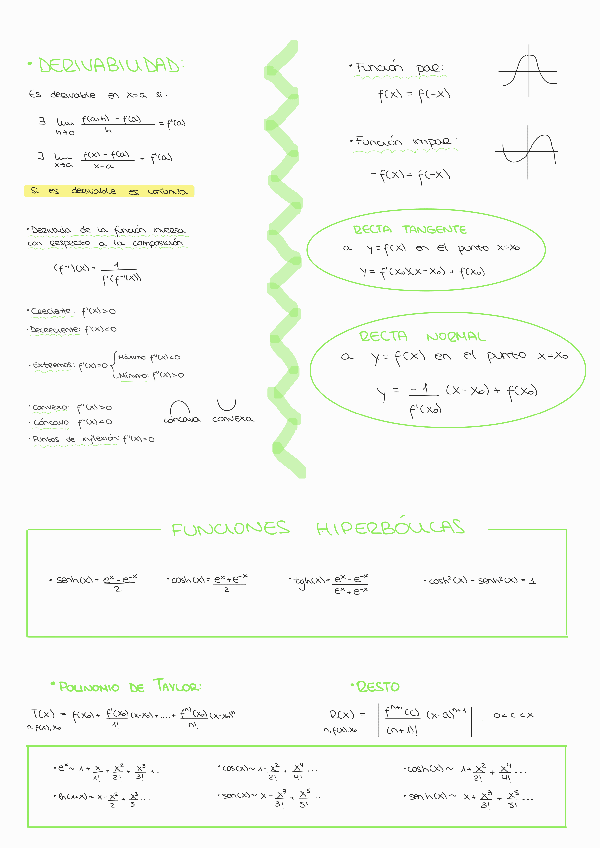 • DERIVABILIDAD:
Es derivable en x=a si:
∃ lim h→0 f(a+h) - f(a) / h = f'(a)
∃ lim x→a f(x) - f(a) / x-a = f'(a)
Si es derivable es continua
• Derivada de la función inversa
con respecto a la composición
(f⁻¹)'(x) = 1 / f'(f⁻¹(x))
• Creciente: f'(x)>0
• Decreciente: f'(x)<0
• Extremos: f'(x)=0 { Máximo: f''(x)<0
Mínimo: f''(x)>0
• Convexa: f''(x)>0
• Cóncava: f''(x)<0
cóncava convexa
• Puntos de inflexión: f''(x)=0
• Función par:
f(x) = f(-x)
• Función impar:
-f(x) = f(-x)
RECTA TANGENTE
a y=f(x) en el punto x=x₀
y = f'(x₀)(x-x₀) + f(x₀)
RECTA NORMAL
a y=f(x) en el punto x=x₀
y = -1 / f'(x₀) (x-x₀) + f(x₀)
FUNCIONES HIPERBÓLICAS
• senh(x) = eˣ - e⁻ˣ / 2 • cosh(x) = eˣ + e⁻ˣ / 2 • tgh(x) = eˣ - e⁻ˣ / eˣ + e⁻ˣ • cosh²(x) - senh²(x) = 1
• POLINOMIO DE TAYLOR: • RESTO
T(x) = f(x₀) + f'(x₀)/1! (x-x₀) + .... + fⁿ)(x₀)/n! (x-x₀)ⁿ R(x) = | fⁿ⁺¹(c) / (n+1)! (x-a)ⁿ⁺¹ | a<c<x
n, f(x), x₀ n, f(x), x₀
• eˣ ~ 1 + x/1! + x²/2! + x³/3! + .. • cos(x) ~ 1 - x²/2! + x⁴/4! ... • cosh(x) ~ 1 + x²/2! + x⁴/4! ...
• ln(1+x) ~ x - x²/2 + x³/3 ... • sen(x) ~ x - x³/3! + x⁵/5! ... • senh(x) ~ x + x³/3! + x⁵/5! ...